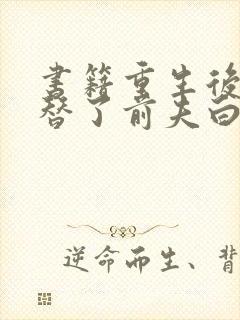 書籍重生後
替了前夫白
逆命而生、背